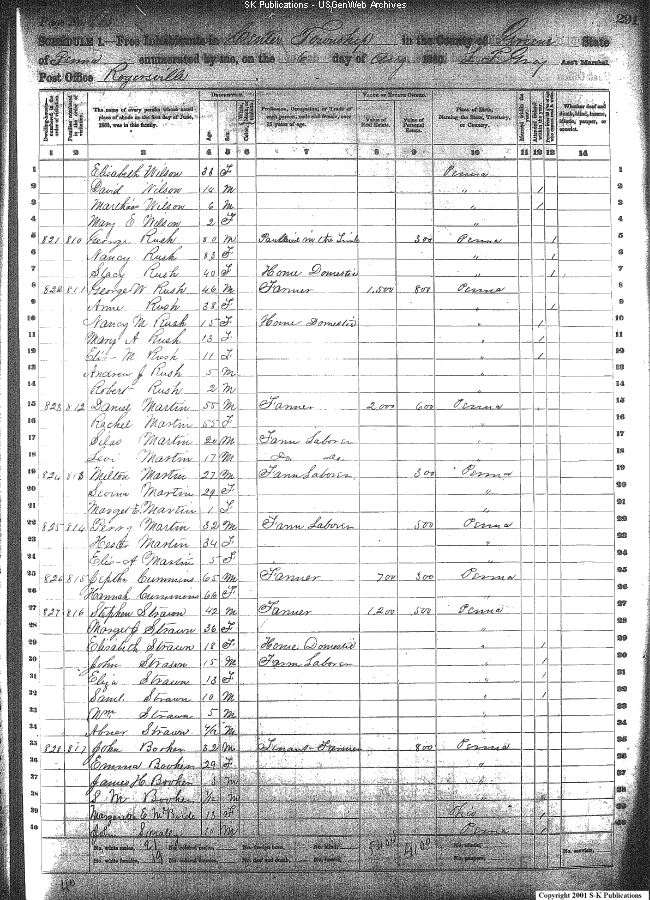 SK Publications - USGenWeb Archives
291
SCHEDULE 1.—Free Inhabitants in Center Township in the County of Greene State
of Penna enumerated by me, on the 6 day of Aug 1860. Ass't Marshal.
Post Office Rogersville
DESCRIPTION. VALUE OF ESTATE OWNED.
The name of every person whose usual place of abode on the first day of June, 1860, was in this family. Age. Sex. Profession, Occupation, or Trade of each person, male and female, over 15 years of age. Value of Real Estate. Value of Personal Estate. Place of Birth, Naming the State, Territory, or Country. Whether deaf and dumb, blind, insane, idiotic, pauper, or convict.
1 2 3 4 5 6 7 8 9 10 11 12 13 14
1 Elisabeth Wilson 38 F Penna 1
2 David Wilson 14 M " / 2
3 Wilson 6 M " / 3
4 Mary E Wilson 2 F " 4
5 821 810 George Rush 80 M 300 Penna / 5
6 Nancy Rush 83 F " / 6
7 Stacy Rush 40 F Home Domestic " / 7
8 822 811 George W Rush 46 M Farmer 1,500 800 Penna 8
9 Anne Rush 38 F " / 9
10 Nancy M Rush 15 F Home Domestic " / 10
11 Mary A Rush 13 F " / 11
12 Eliz M Rush 11 F " / 12
13 Andrew J Rush 5 M " 13
14 Robert Rush 2 M " 14
15 823 812 Daniel Martin 55 M Farmer 2,000 600 Penna 15
16 Rachel Martin 55 F " 16
17 Silas Martin 20 M Farm Laborer " 17
18 Levi Martin 17 M Do Do " 18
19 824 813 Milton Martin 27 M Farm Laborer 300 Penna 19
20 Martin 29 F " 20
21 Marget E Martin 1 F " 21
22 825 814 Perry Martin 32 M Farm Laborer 500 Penna 22
23 Hester Martin 34 F " 23
24 Eliz A Martin 5 F " 24
25 826 815 Cummins 65 M Farmer 700 300 Penna 25
26 Hannah Cummins 66 F " 26
27 827 816 Stephen Strawn 42 M Farmer 1,200 500 Penna 27
28 Marget J Strawn 36 F " 28
29 Elisabeth Strawn 18 F Home Domestic " / 29
30 John Strawn 15 M Farm Laborer " / 30
31 Eliza Strawn 13 F " / 31
32 Saml Strawn 10 M " / 32
33 Wm Strawn 5 M "
34 Abner Strawn M "
35 828 817 John Booher 32 M Tenant Farmer 800 Penna
36 Emma Booher 29 F "
37 James H Booher 3 M "
38 S Booher M "
39 Margaretta E McBride 13 F Ohio /
40 10 M Penna / 40
No. white males, 21 No. colored males, No. foreign born, No. blind, 5400 4100 No. idiotic, No. convicts,
No. white females, 19 No. colored females, No. deaf and dumb, No. insane, No. paupers,
40
Copyright 2001 S-K Publications